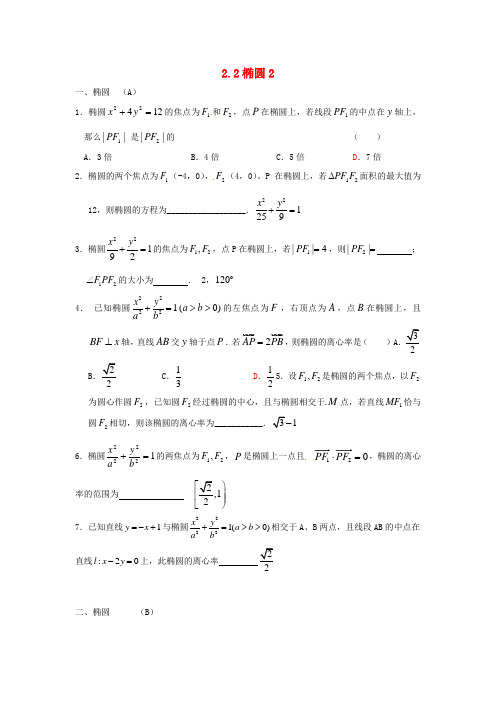 2.2椭圆2
一、椭圆 （A）
1．椭圆 $x^2+4y^2=12$ 的焦点为 $F_1$ 和 $F_2$，点 $P$ 在椭圆上，若线段 $PF_1$ 的中点在 $y$ 轴上，
那么 $|PF_1|$ 是 $|PF_2|$ 的 （ ）
A．3倍 B．4倍 C．5倍 D．7倍
2．椭圆的两个焦点为 $F_1$（-4，0），$F_2$（4，0），P 在椭圆上，若 $\Delta PF_1F_2$ 面积的最大值为
12，则椭圆的方程为__________________．$\frac{x^2}{25}+\frac{y^2}{9}=1$
3．椭圆 $\frac{x^2}{9}+\frac{y^2}{2}=1$ 的焦点为 $F_1,F_2$，点 P 在椭圆上，若 $|PF_1|=4$，则 $|PF_2|=$ ________；
$\angle F_1PF_2$ 的大小为 ． 2，$120°$
4． 已知椭圆 $\frac{x^2}{a^2}+\frac{y^2}{b^2}=1(a>b>0)$ 的左焦点为 $F$，右顶点为 $A$，点 $B$ 在椭圆上，且
$BF\perp x$ 轴，直线 $AB$ 交 $y$ 轴于点 $P$．若 $\overline{AP}=2\overline{PB}$，则椭圆的离心率是（ ）A．$\frac{\sqrt{3}}{2}$
B．$\frac{\sqrt{2}}{2}$ C．$\frac{1}{3}$ D．$\frac{1}{2}$ 5．设 $F_1,F_2$ 是椭圆的两个焦点，以 $F_2$
为圆心作圆 $F_2$，已知圆 $F_2$ 经过椭圆的中心，且与椭圆相交于 $M$ 点，若直线 $MF_1$ 恰与
圆 $F_2$ 相切，则该椭圆的离心率为___________．$\sqrt{3}-1$
6．椭圆 $\frac{x^2}{a^2}+\frac{y^2}{b^2}=1$ 的两焦点为 $F_1,F_2$，$P$ 是椭圆上一点且 $\overline{PF_1}\cdot\overline{PF_2}=0$，椭圆的离心
率的范围为 ________ $\left[\frac{\sqrt{2}}{2},1\right)$
7．已知直线 $y=-x+1$ 与椭圆 $\frac{x^2}{a^2}+\frac{y^2}{b^2}=1(a>b>0)$ 相交于 A、B 两点，且线段 AB 的中点在
直线 $l:x-2y=0$ 上，此椭圆的离心率________ $\frac{\sqrt{2}}{2}$
二、椭圆 （B）